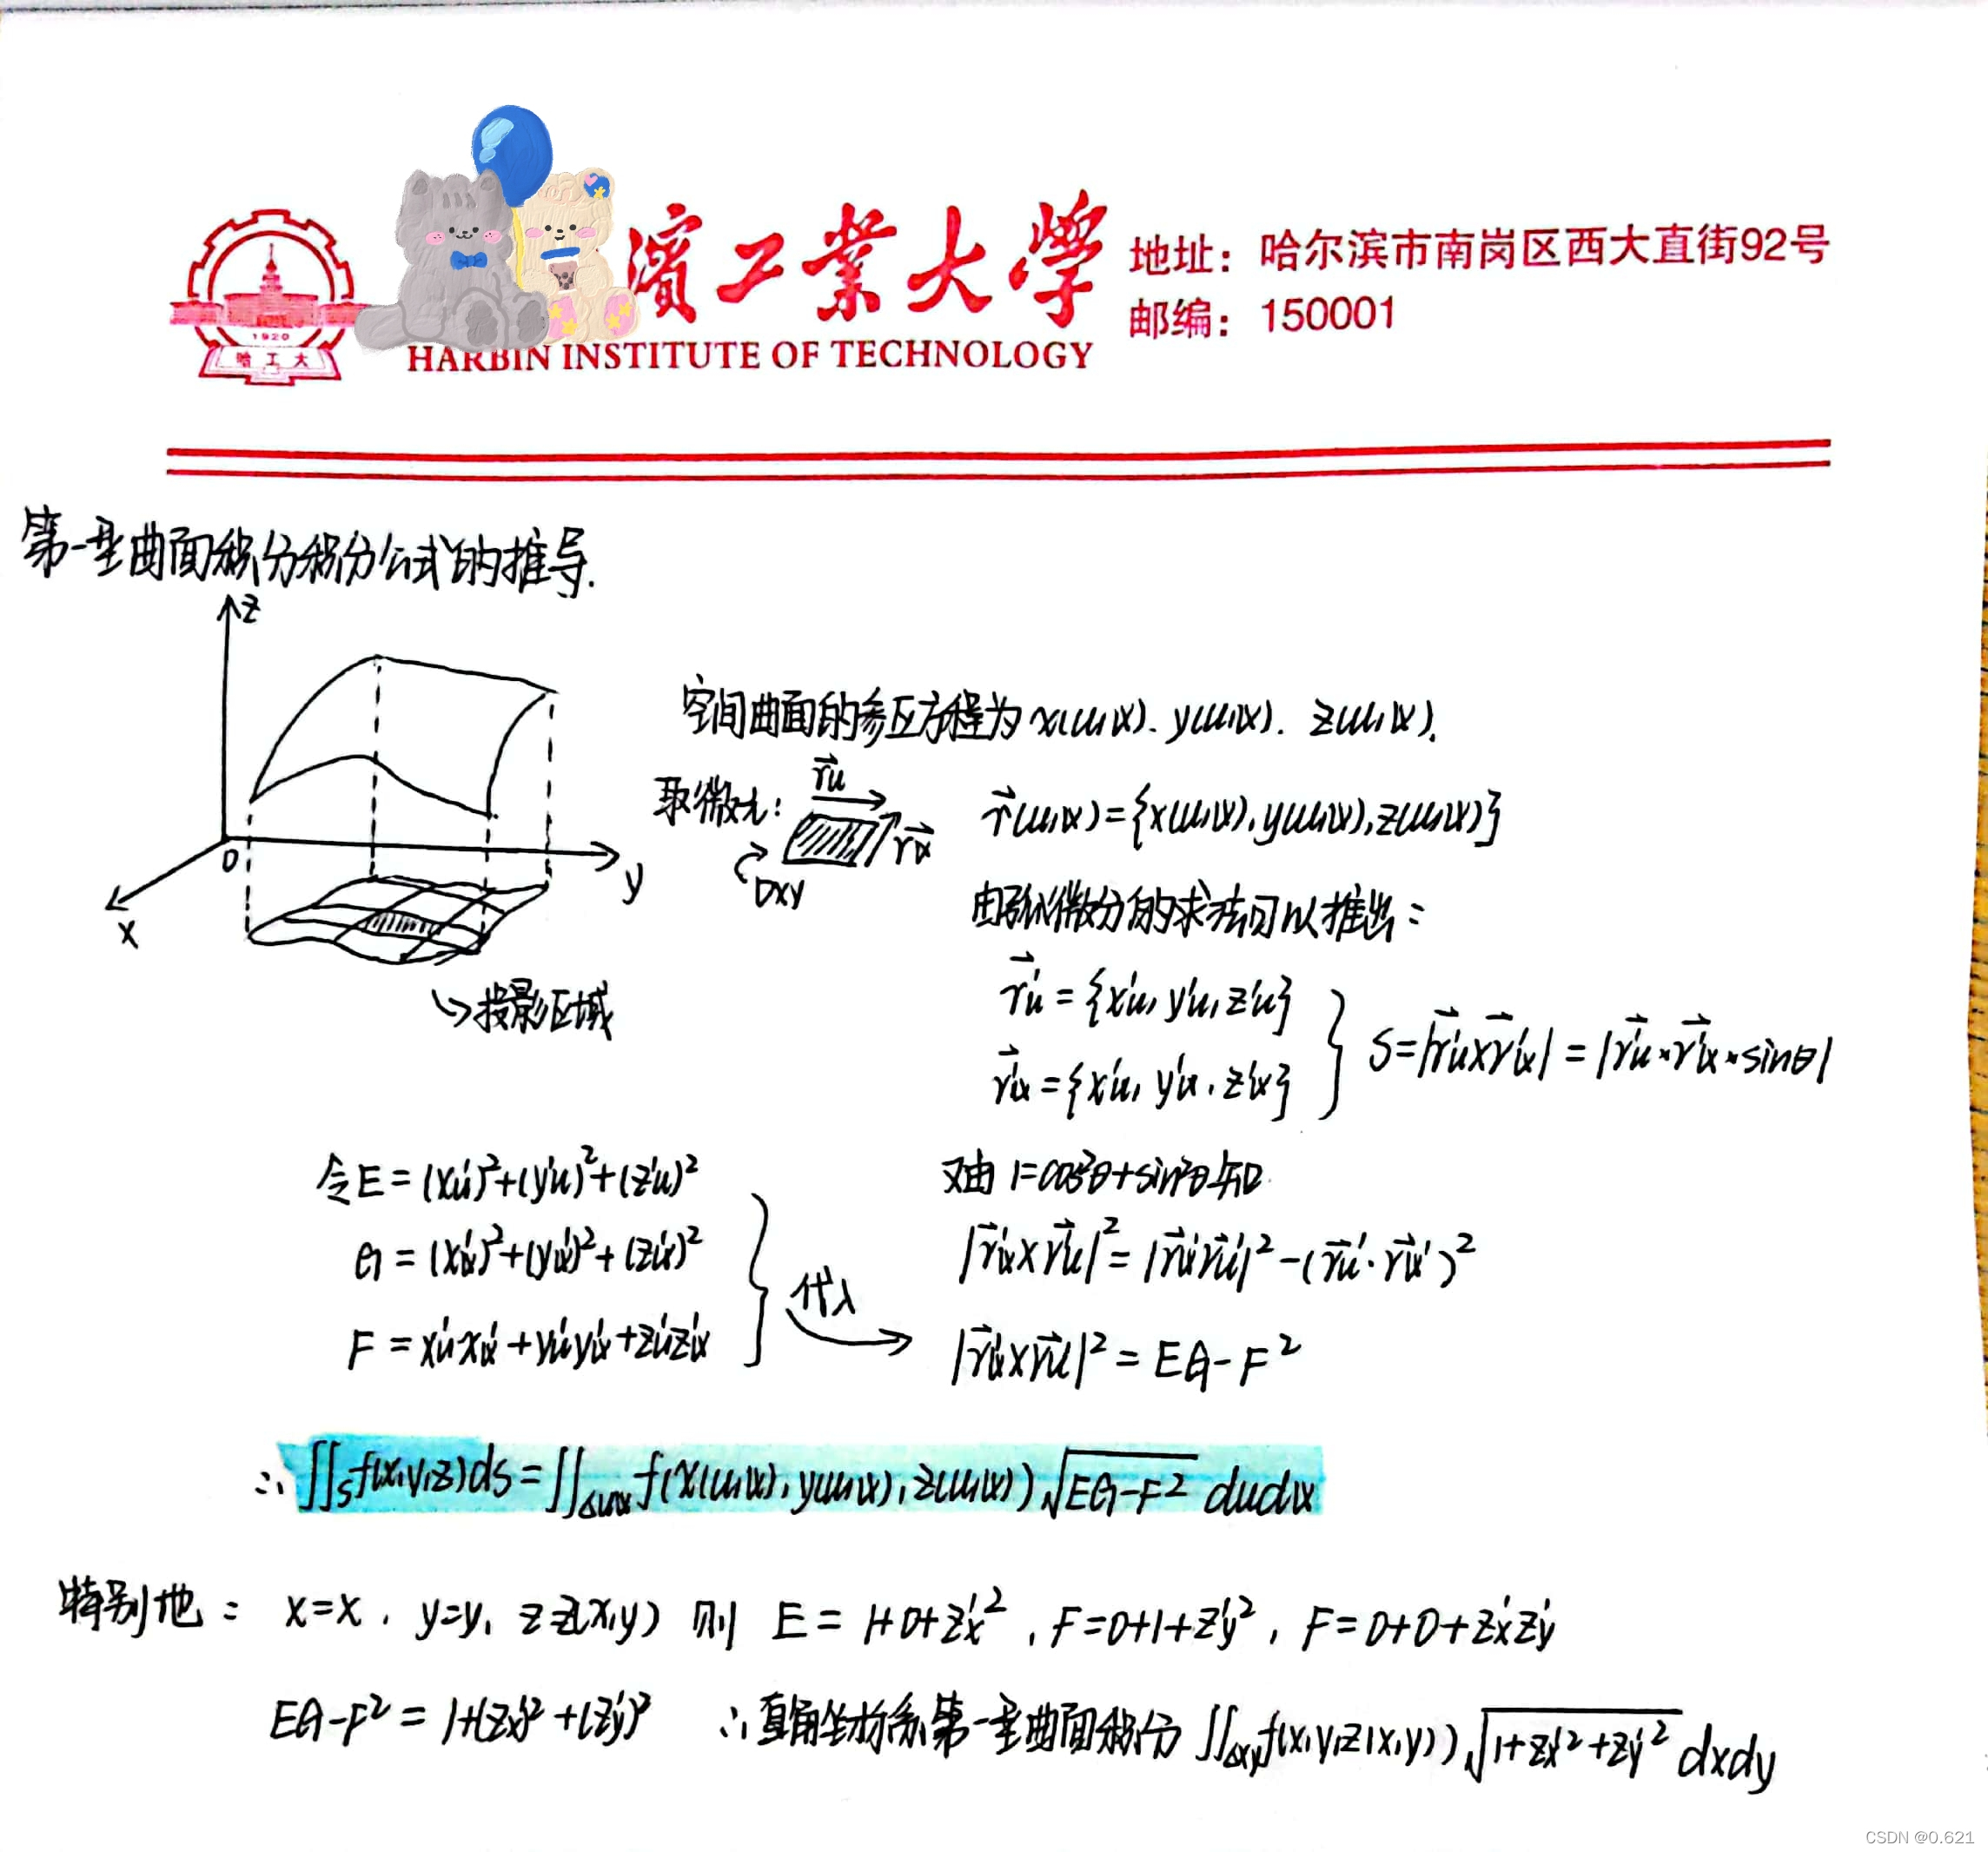 濱工業大學
HARBIN INSTITUTE OF TECHNOLOGY
1920
哈工大
地址：哈尔滨市南岗区西大直街92号
邮编：150001
第一型曲面积分积分公式的推导.
z
O
y
x
投影区域
空间曲面的参数方程为 x(u,v). y(u,v). z(u,v).
取微元: r⃗u r⃗v Dxy
r⃗(u,v)={x(u,v),y(u,v),z(u,v)}
由弧微分的求法可以推出:
r⃗'u={x'u, y'u, z'u}
r⃗'v={x'u, y'v, z'v}
S=|r⃗'u×r⃗'v|=|r⃗'u*r⃗'v*sinθ|
令E=(x'u)²+(y'u)²+(z'u)²
G=(x'v)²+(y'v)²+(z'v)²
F=x'ux'v+y'uy'v+z'uz'v
代入
又由 1=cos²θ+sin²θ知
|r⃗'v×r⃗'u|²=|r⃗'vr⃗'u|²-(r⃗u'·r⃗v')²
|r⃗'v×r⃗'u|²=EG-F²
∴∬s f(x,y,z)ds=∬Δuv f(x(u,v),y(u,v),z(u,v))√(EG-F²) dudv
特别地: x=x, y=y, z=z(x,y) 则 E=1+0+z'x², F=0+1+z'y², F=0+0+z'xz'y
EG-F²=1+(z'x)²+(z'y)² ∴直角坐标系第一型曲面积分 ∬Δxy f(x,y,z(x,y))√(1+z'x²+z'y²) dxdy
CSDN @0.621